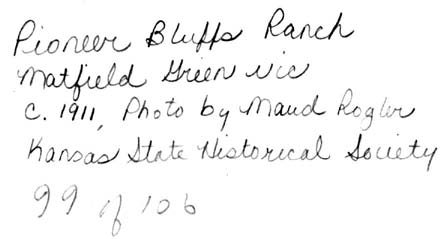 Pioneer Bluffs Ranch
Matfield Green vic
c. 1911, Photo by Maud Rogler
Kansas State Historical Society
99 of 106